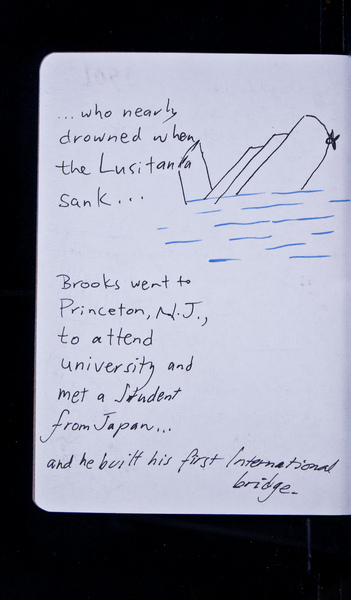 ...who nearly
drowned when
the Lusitania
sank...
Brooks went to
Princeton, N.J.,
to attend
university and
met a student
from Japan...
and he built his first International
bridge.